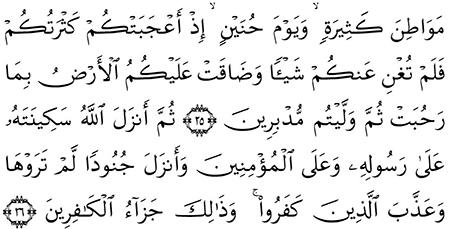 مَوَاطِنَ كَثِيرَةٍۙ وَيَوْمَ حُنَيْنٍۙ إِذْ أَعْجَبَتْكُمْ كَثْرَتُكُمْ
فَلَمْ تُغْنِ عَنكُمْ شَيْـًٔا وَضَاقَتْ عَلَيْكُمُ ٱلْأَرْضُ بِمَا
رَحُبَتْ ثُمَّ وَلَّيْتُم مُّدْبِرِينَ ۝٢٥ ثُمَّ أَنزَلَ ٱللَّهُ سَكِينَتَهُۥ
عَلَىٰ رَسُولِهِۦ وَعَلَى ٱلْمُؤْمِنِينَ وَأَنزَلَ جُنُودًا لَّمْ تَرَوْهَا
وَعَذَّبَ ٱلَّذِينَ كَفَرُوا۟ۚ وَذَٰلِكَ جَزَآءُ ٱلْكَـٰفِرِينَ ۝٢٦